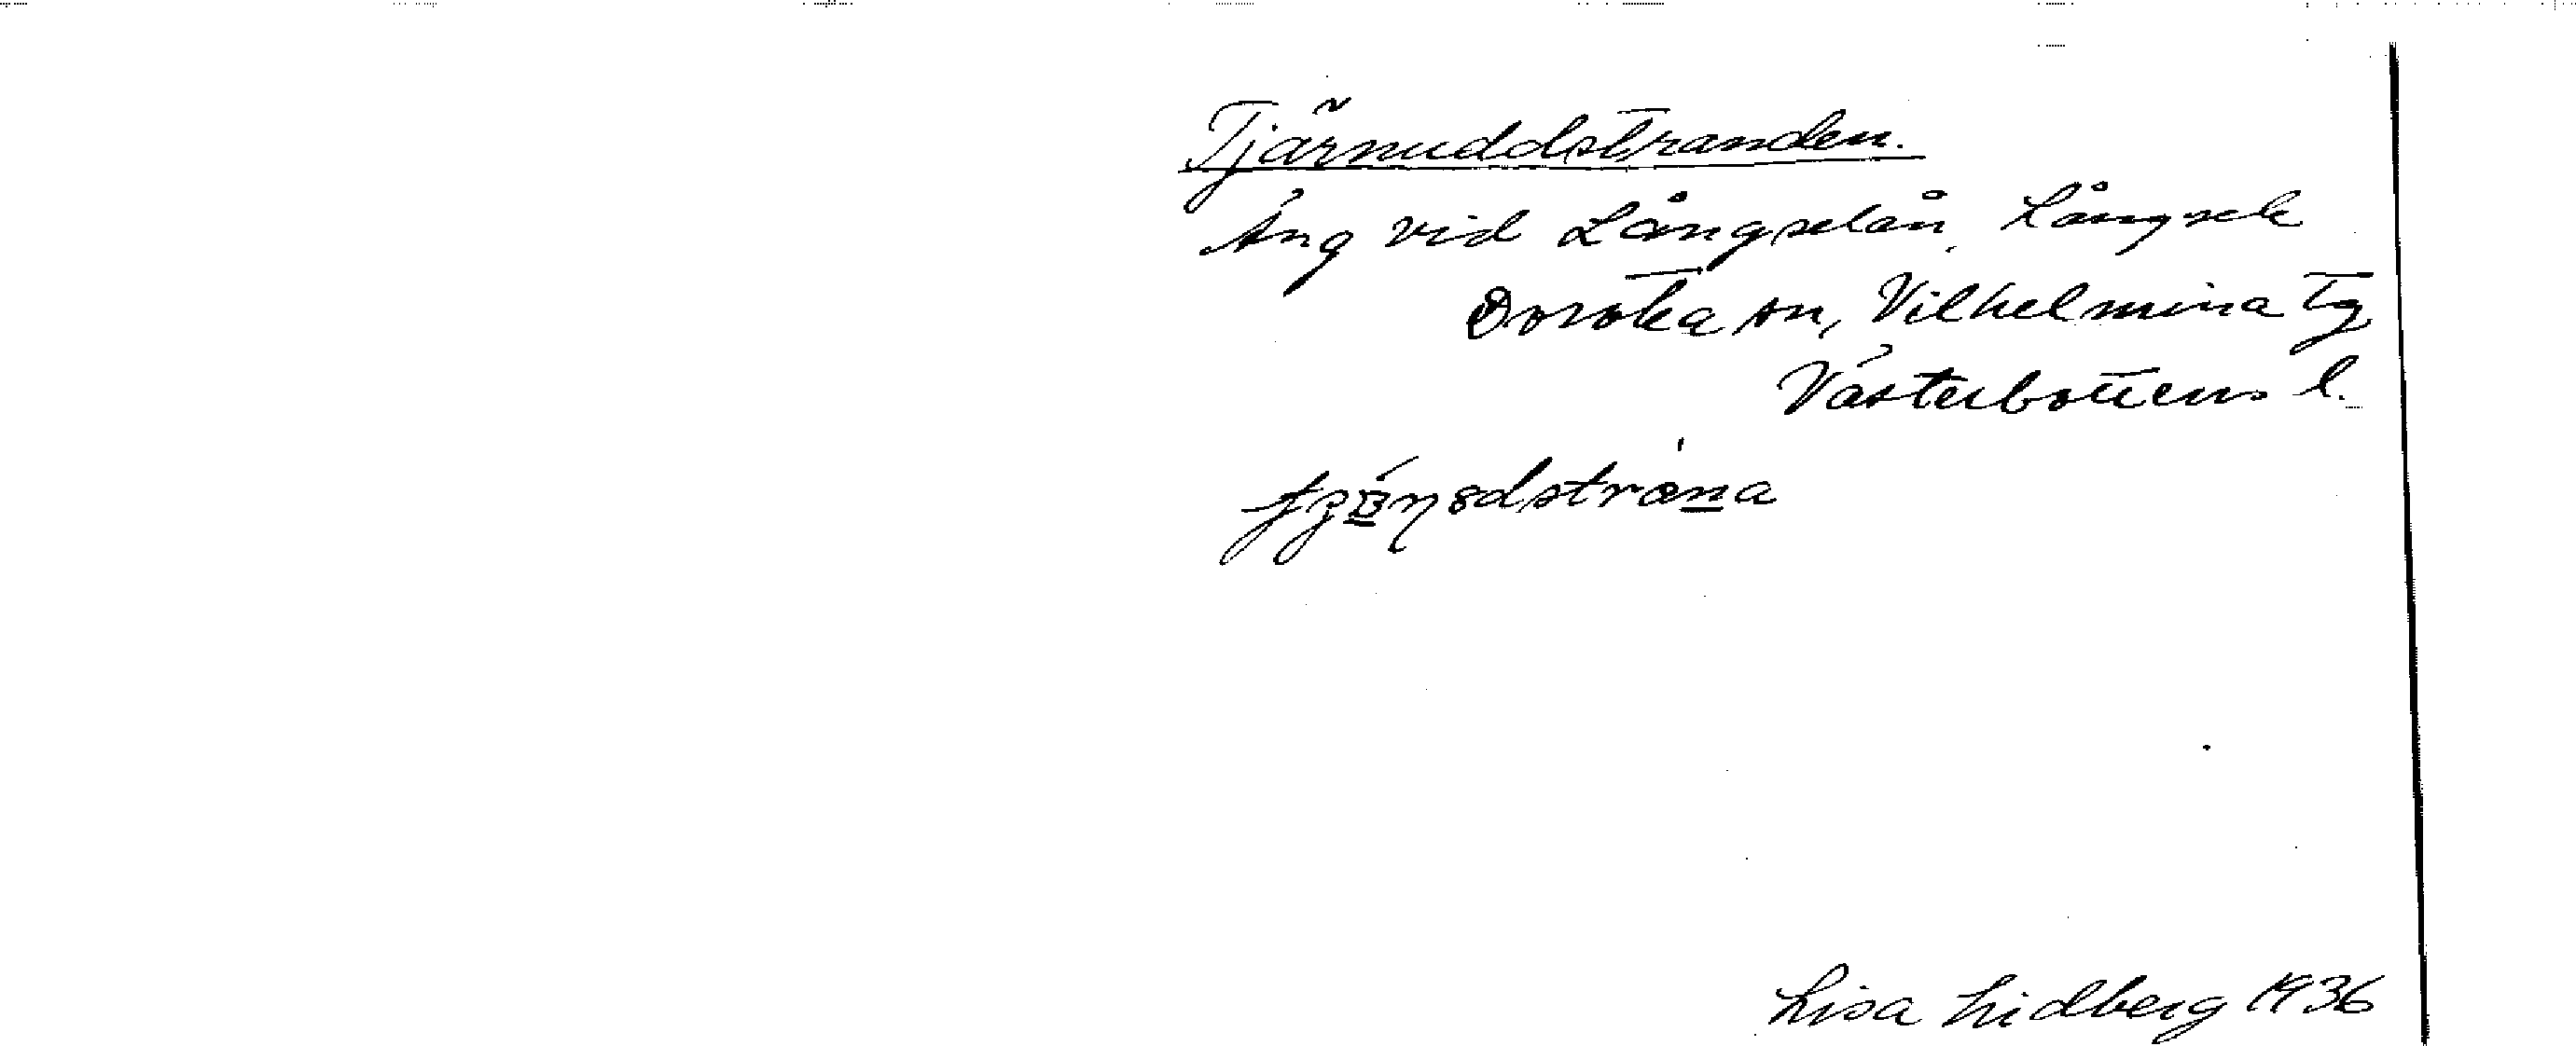 Tjärnuddstranden.
Äng vid Långselån, Långsele
Dorotea sn, Vilhelmina tg
Västerbottens l.
Lisa Lidberg 1936